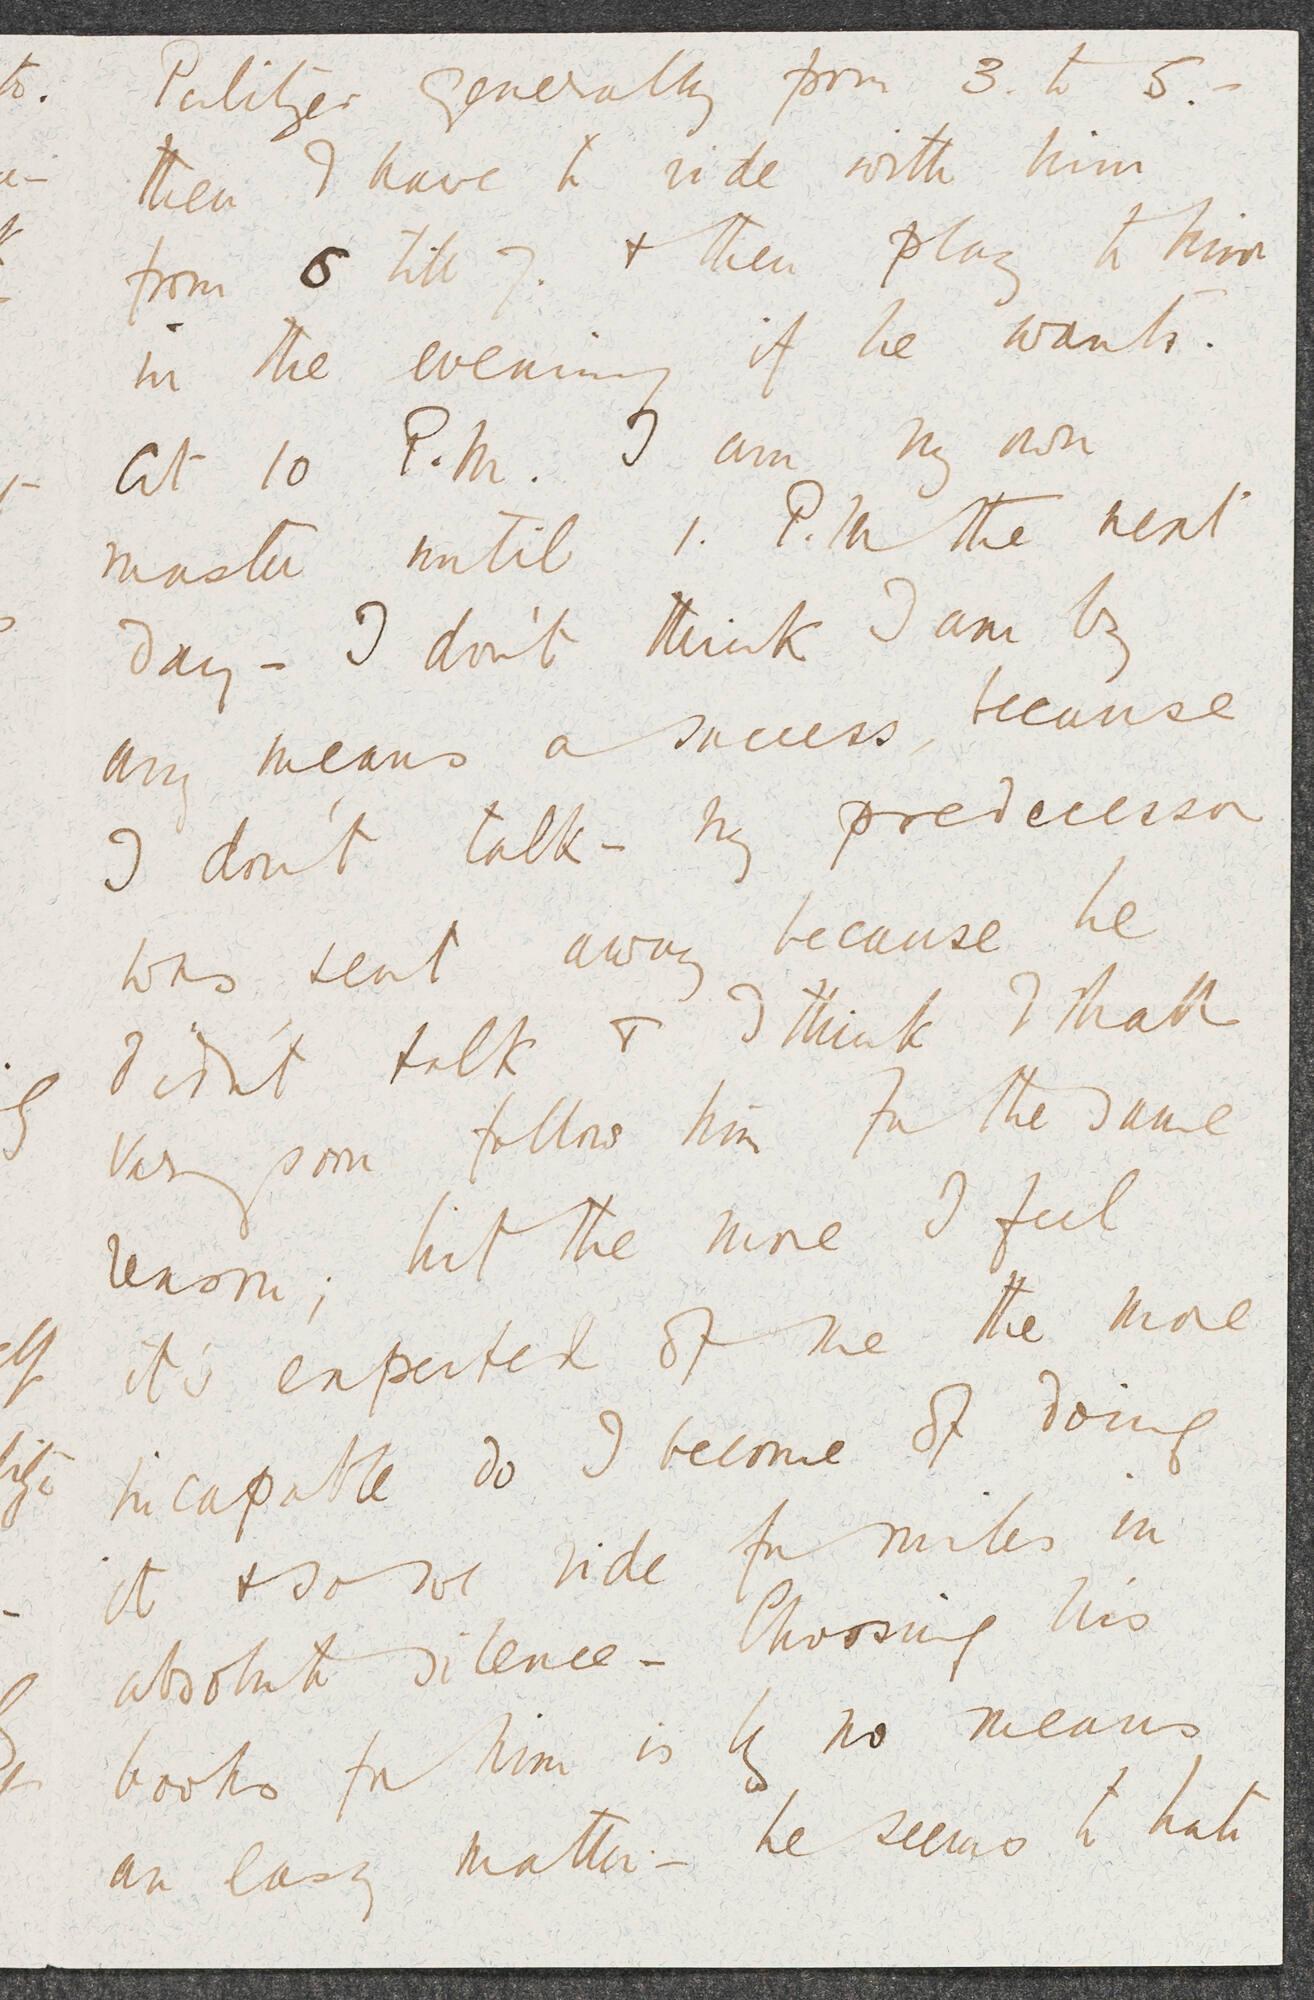 Pulitzer generally from 3. to 5. -
then I have to ride with him
from 5 till 7. + then play to him
in the evening if he wants.
At 10 P.M. I am my own
master until 1. P.M the next
day - I don't think I am by
any means a success, because
I don't talk - my predecessor
was sent away because he
didn't talk & I think I shall
very soon follow him for the same
reason; but the more I feel
it's expected of me the more
incapable do I become of doing
it + so we ride for miles in
absolute silence - Choosing his
books for him is by no means
an easy matter. - he seems to hate